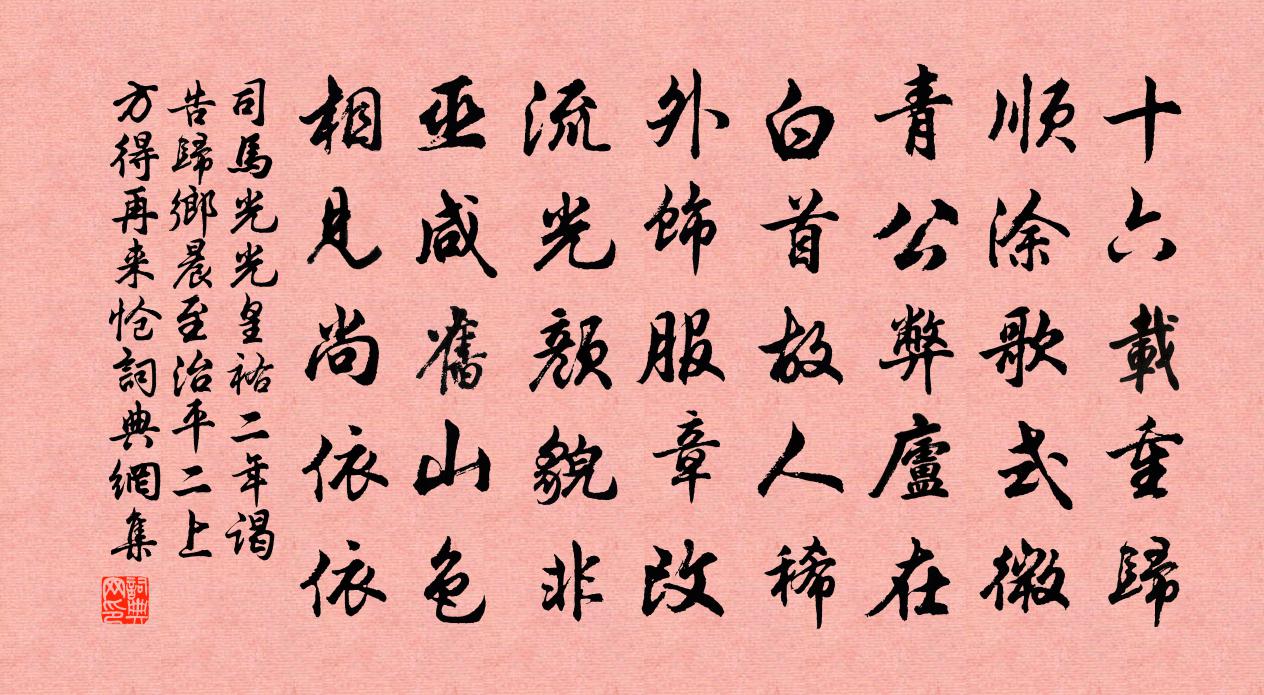 十六載重歸
順涂歌式微
青公弊廬在
白首故人稀
外飾服章改
流光顏貌非
巫咸舊山色
相見尚依依
司馬光光皇祐二年谒
告歸鄉晨至治平二上
方得再来怆詞典網集
詞典網印